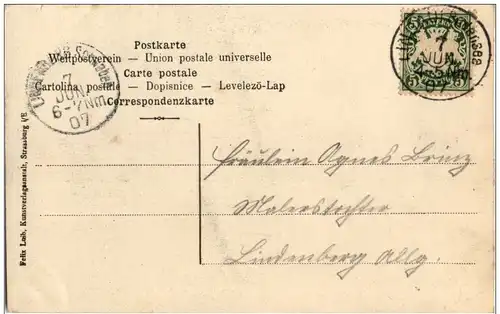 Postkarte
Weltpostverein – Union postale universelle
Carte postale
Cartolina postale – Dopisnice – Levelező-Lap
Correspondenzkarte
7
JUN.
6-7 Nm
07
5
5
7
JUN.
07
Felix Luib, Kunstverlagsanstalt, Strassburg i/E
Fräulein Agnes Brinz
Malerstochter
Lindenberg Allg.